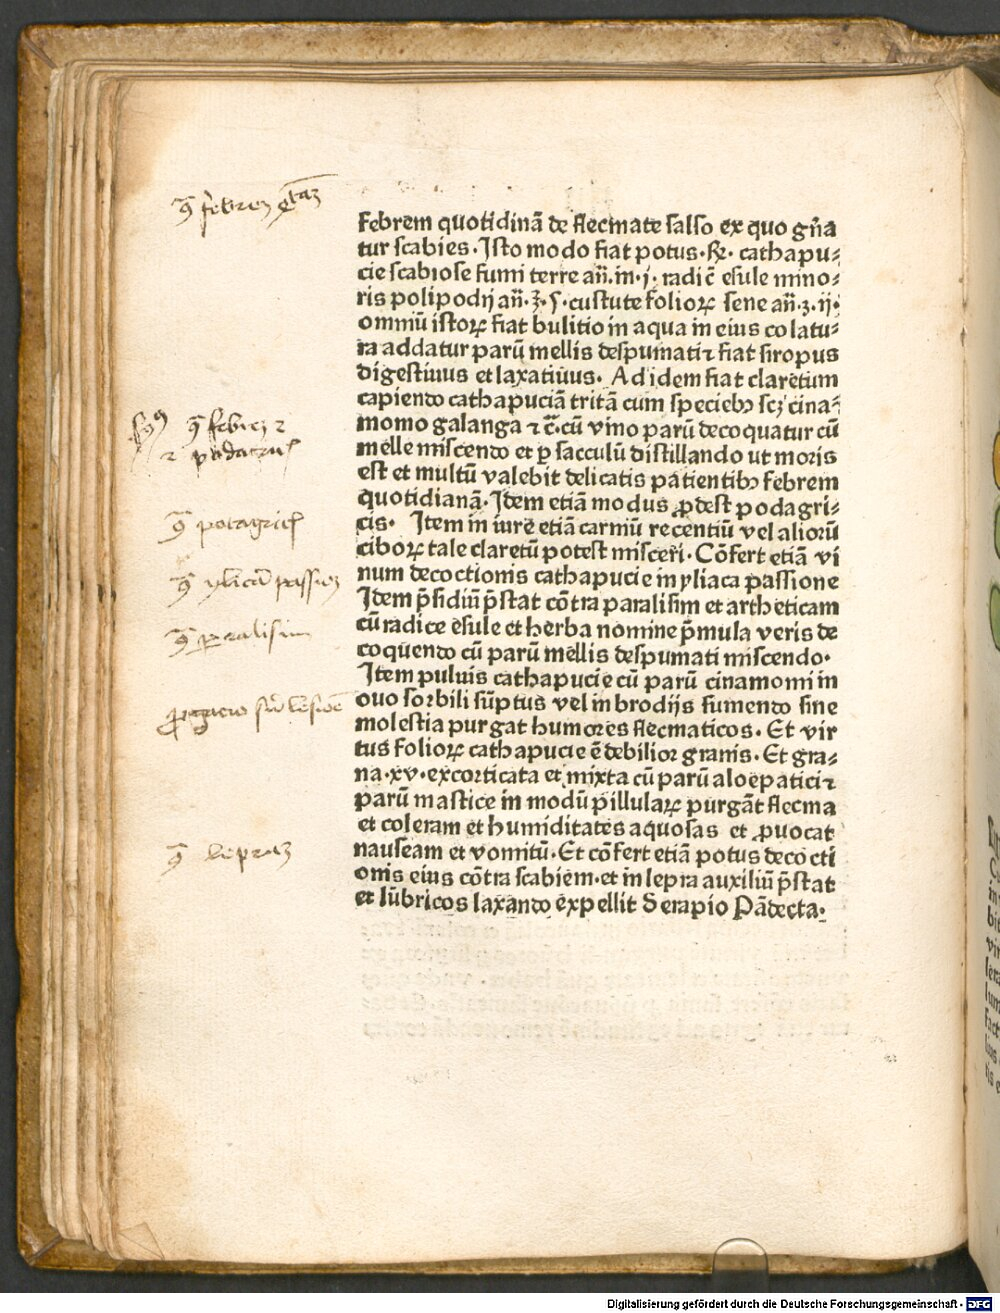 febrem
Febrem quotidinā de flecmate salso ex quo gn̄a
tur scabies. Isto modo fiat potus. ꝶ. cathapu⸗
cie scabiose fumi terre an̄. m. j. radic̄ esule mino⸗
ris polipodij an̄. ʒ. s. custute folioꝝ sene an̄. ʒ. ij.
omniū istoꝝ fiat bulitio in aqua in eius colatu⸗
ra addatur parū mellis despumati ⁊ fiat siropus
digestiuus et laxatiuus. Ad idem fiat claretum
capiendo cathapuciā tritā cum speciebꝫ scꝫ cina⸗
momo galanga ⁊ c̄. cū vino parū decoquatur cū
melle miscendo et ꝑ sacculū distillando ut moris
est et multū valebit delicatis patientibꝫ febrem
quotidianā. Idem etiā modus ꝓdest podagri⸗
cis. Item in iure etiā carniū recentiū vel alioꝝ
ciboꝝ tale claretū potest misceri. Cōfert etiā vi
num decoctionis cathapucie in yliaca passione
Idem p̄sidiū p̄stat cōtra paralisim et artheticam
cū radice esule et herba nomine p̄mula veris de
coquendo cū parū mellis despumati miscendo.
Item puluis cathapucie cū parū cinamomi in
ouo sorbili sūptus vel in brodijs sumendo sine
molestia purgat humores flecmaticos. Et vir
tus folioꝝ cathapucie ē debilior granis. Et gra⸗
na. xv. excorticata et mixta cū parū aloepatici ⁊
parū mastice in modū pillulaꝝ purgāt flecma
et coleram et humiditates aquosas et ꝓuocat
nauseam et vomitū. Et cōfert etiā potus decocti
onis eius cōtra scabiem. et in lepra auxiliū p̄stat
et lūbricos laxando expellit Serapio Pādecta.
paralisim
Digitalisierung gefördert durch die Deutsche Forschungsgemeinschaft - DFG